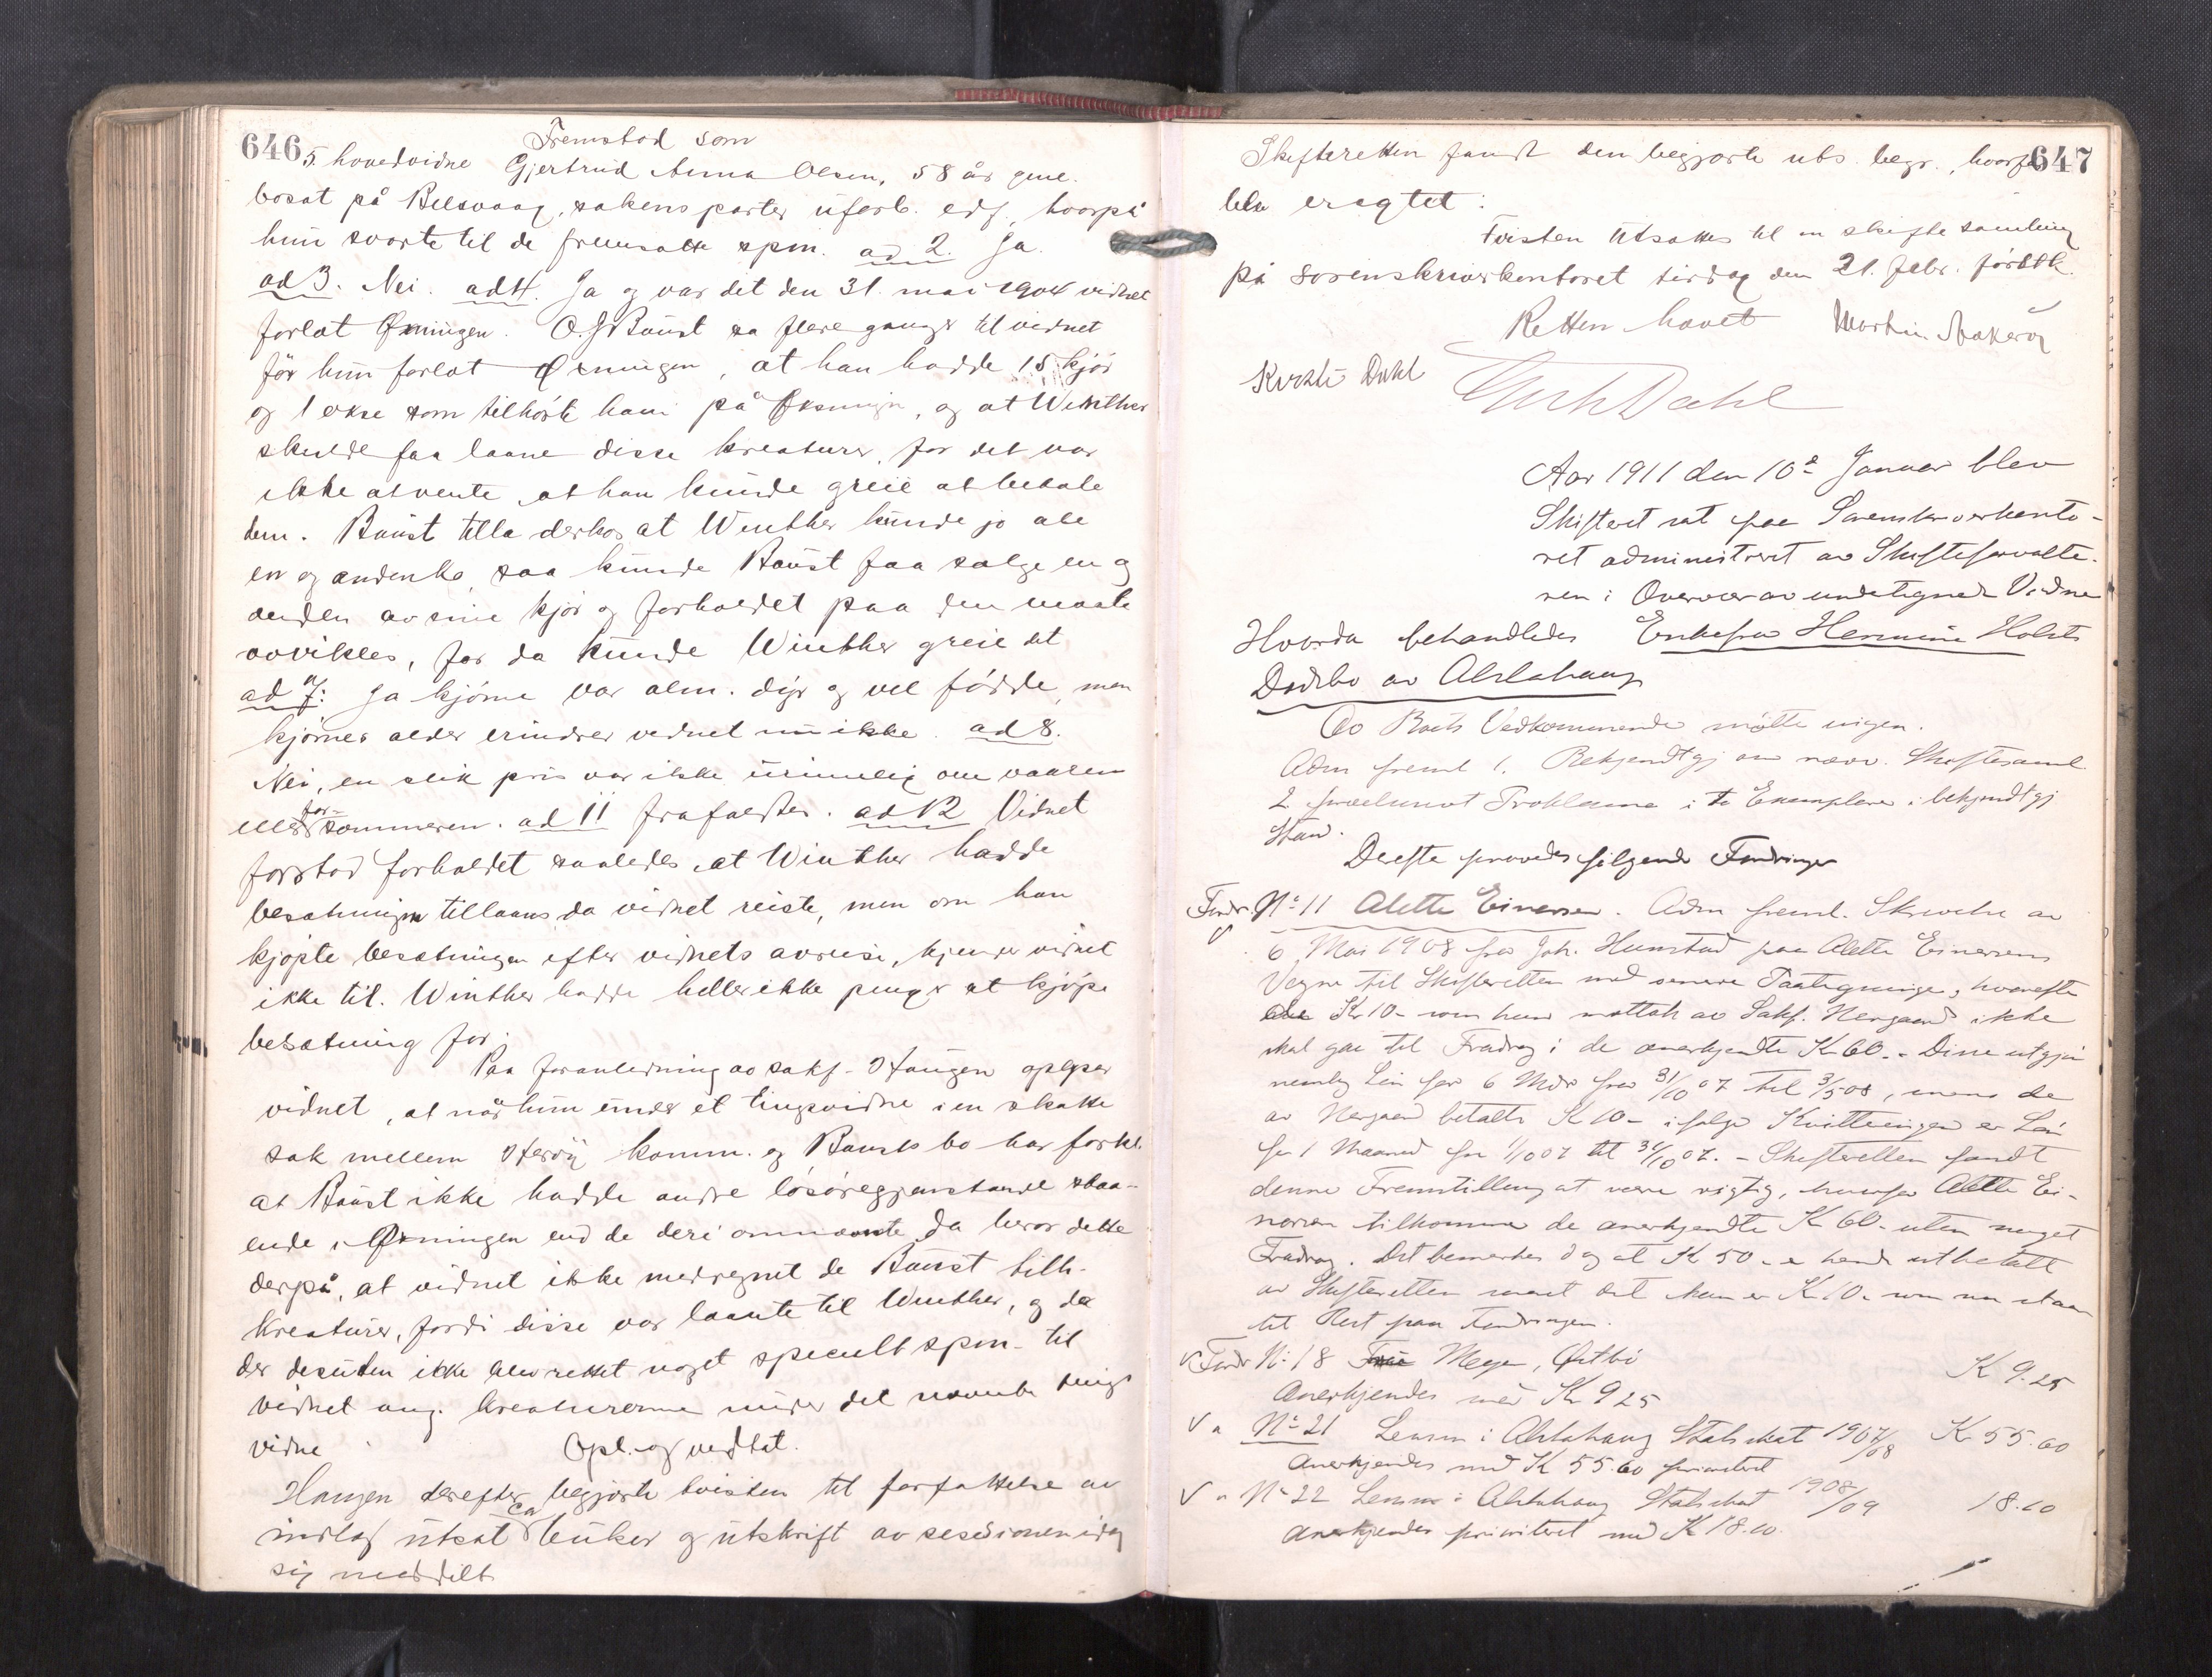 646
Fremstod som
5. hovedvidne Gjertrud Anna Olsen, 58 år gml.
bosat på Belsvaag, sakens parter uforb. edf., hvorpå
hun svarte til de fremsatte spm. ad 2. Ja.
ad 3. Nei. ad 4. Ja og var det den 31. mai 1904 vidnet
forlot Øxningen. O. J. Baust sa flere ganger til vidnet
før hun forlot Øxningen, at han hadde 15 kjør
og 1 okse som tilhørte ham på Øksningen, og at Winther
skulde faa laane disse kreaturer, for det var
ikke at vente, at han kunde greie at betale
dem. Baust tilla derhos at Winther kunde jo ale
en og anden ko, saa kunde Baust faa sælge en og
anden av sine kjør og forholdet paa den maate
avvikles, for da kunde Winther greie det
ad 7: Ja kjørne var alm. dyr og vel fødde, men
kjørnes alder erindrer vidnet nu ikke. ad 8.
Nei, en slik pris var ikke urimelig om vaaren
eller for-sommeren. ad 11 frafaldtes. ad 12 Vidnet
forstod forholdet saaledes, at Winther hadde
besætningen tillaans da vidnet reiste, men om han
kjøpte besætningen efter vidnets avreise, kjender vidnet
ikke til. Winther hadde heller ikke penger at kjøpe
besætning for.
Paa foranledning av sakf. Haugen oplyser
vidnet, at når hun under et tingsvidne i en skatte
sak mellem Herøy komm. og Bausts bo har forkl.
at Baust ikke hadde andre løsøregjenstande staa-
ende i Øxningen end de deri omnævnte, da beror dette
derpå, at vidnet ikke medregnet de Baust tilh.
kreaturer, fordi disse var laante til Winther, og da
der desuten ikke blev rettet noget specielt spm. til
vidnet ang. kreaturerne under det nævnte tings
vidne
Opl. og vedtat.
Haugen derefter begjærte tvisten til forfattelse av
indlæg utsat ca 6 uker og utskrift av sessionen idag
sig meddelt
647
Skifteretten fandt den begjærte uts. begr., hvorfor
blev eragtet:
Tvisten utsættes til en skiftesamling
på sorenskriverkontoret tirsdag den 21. febr. førstk.
Retten hævet
Martin
Kirsti Dahl
Dahl
Aar 1911 den 10de Januar blev
Skifteret sat paa Sorenskriverkonto-
ret administreret av Skifteforvalte-
ren i Overvær av undertegnede Vidne
Hvorda behandledes Enkefru Hermine Holsts
Dødsbo av Alstahaug
Av Boets Vedkommende mødte ingen.
Adm freml 1. Bekjendtgj om nærv. Skiftesaml.
2 proclamat Proklama i to Exemplarer i bekjendtgj
Stand.
Derefter prøvedes følgende Fordringer
Fordr. No 11 Alette Einersen. Adm freml. Skrivelse av
6 Mai 1908 fra Joh. Humstad paa Alette Einersens
Vegne til Skifteretten med senere Paategninger, hvorefter
de Kr 10- som hun mottok av Sakf. Nergaard ikke
skal gaa til Fradrag i de anerkjendte Kr 60.- Disse utgjør
nemlig Løn for 6 Mdr fra 31/10 07 til 3/5 08, mens de
av Nergaard betalte Kr 10- ifølge Kvitteringen er Løn
for 1 Maaned fra 1/10 07 til 31/10 07. - Skifteretten fandt
denne Fremstilling at være rigtig, hvorfor Alette Ei-
nersen tilkommer de anerkjendte Kr 60- uten noget
Fradrag. Det bemerkes dog at Kr 50- er hende utbetalt
av Skifteretten saa at det kun er Kr 10- som nu staar
til Rest paa Fordringen.
Fordr No 18 Frue Meyer, Østbø Kr 9.25
Anerkjendes med Kr 9 25
" No 21 Lensm i Alstahaug Statsskat 1907/08 Kr 55.60
Anerkjendes med Kr 55.60 prioriteret
" No 22 Lensm i Alstahaug Statsskat 1908/09 18.60
Anerkjendes prioriteret med Kr 18.60.